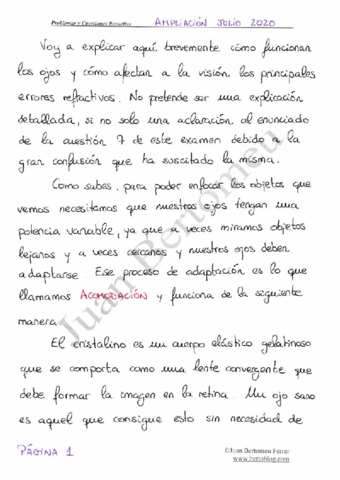 Problemas y Cuestiones Resueltos AMPLIACIÓN JULIO 2020
Voy a explicar aquí brevemente cómo funcionan
los ojos y cómo afectan a la visión los principales
errores refractivos. No pretende ser una explicación
detallada, si no solo una aclaración al enunciado
de la cuestión 7 de este examen debido a la
gran confusión que ha suscitado la misma.
Como sabas, para poder enfocar los objetos que
vemos necesitamos que nuestros ojos tengan una
potencia variable, ya que a veces miramos objetos
lejanos y a veces cercanos y nuestros ojos deben
adaptarse. Ese proceso de adaptación es lo que
llamamos ACOMODACIÓN y funciona de la siguiente
manera
El cristalino es un cuerpo elástico gelatinoso
que se comporta como una lente convergente que
debe formar la imagen en la retina. Un ojo sano
es aquel que consigue esto sin necesidad de
PÁGINA 1
©Juan Bertomeu Ferrer
www.bertoblog.com
Juan Bertomeu